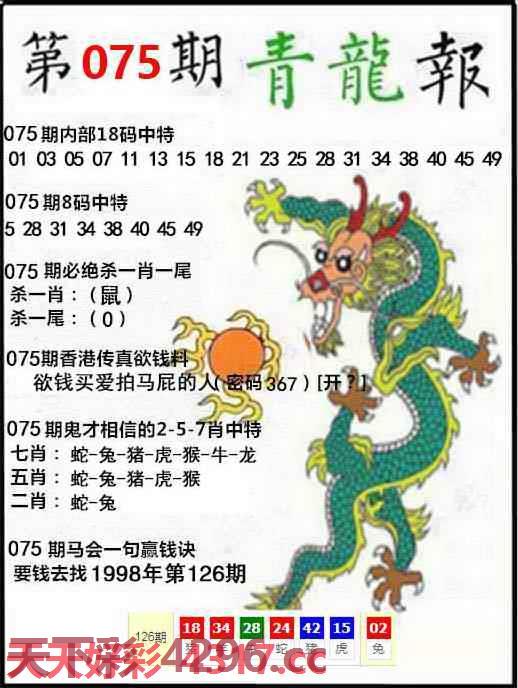 第075期青龍報
075期内部18码中特
01 03 05 07 11 13 15 18 21 23 25 28 31 34 38 40 45 49
075期8码中特
5 28 31 34 38 40 45 49
075 期必绝杀一肖一尾
杀一肖：(鼠)
杀一尾：(0)
075期香港传真欲钱料
欲钱买爱拍马屁的人(密码367)[开?]
075期鬼才相信的2-5-7肖中特
七肖：蛇-兔-猪-虎-猴-牛-龙
五肖：蛇-兔-猪-虎-猴
二肖：蛇-兔
075期马会一句赢钱诀
要钱去找1998年第126期
126期 18 34 28 24 42 15 02
猪 蛇 虎 兔
天天好彩4296.cc